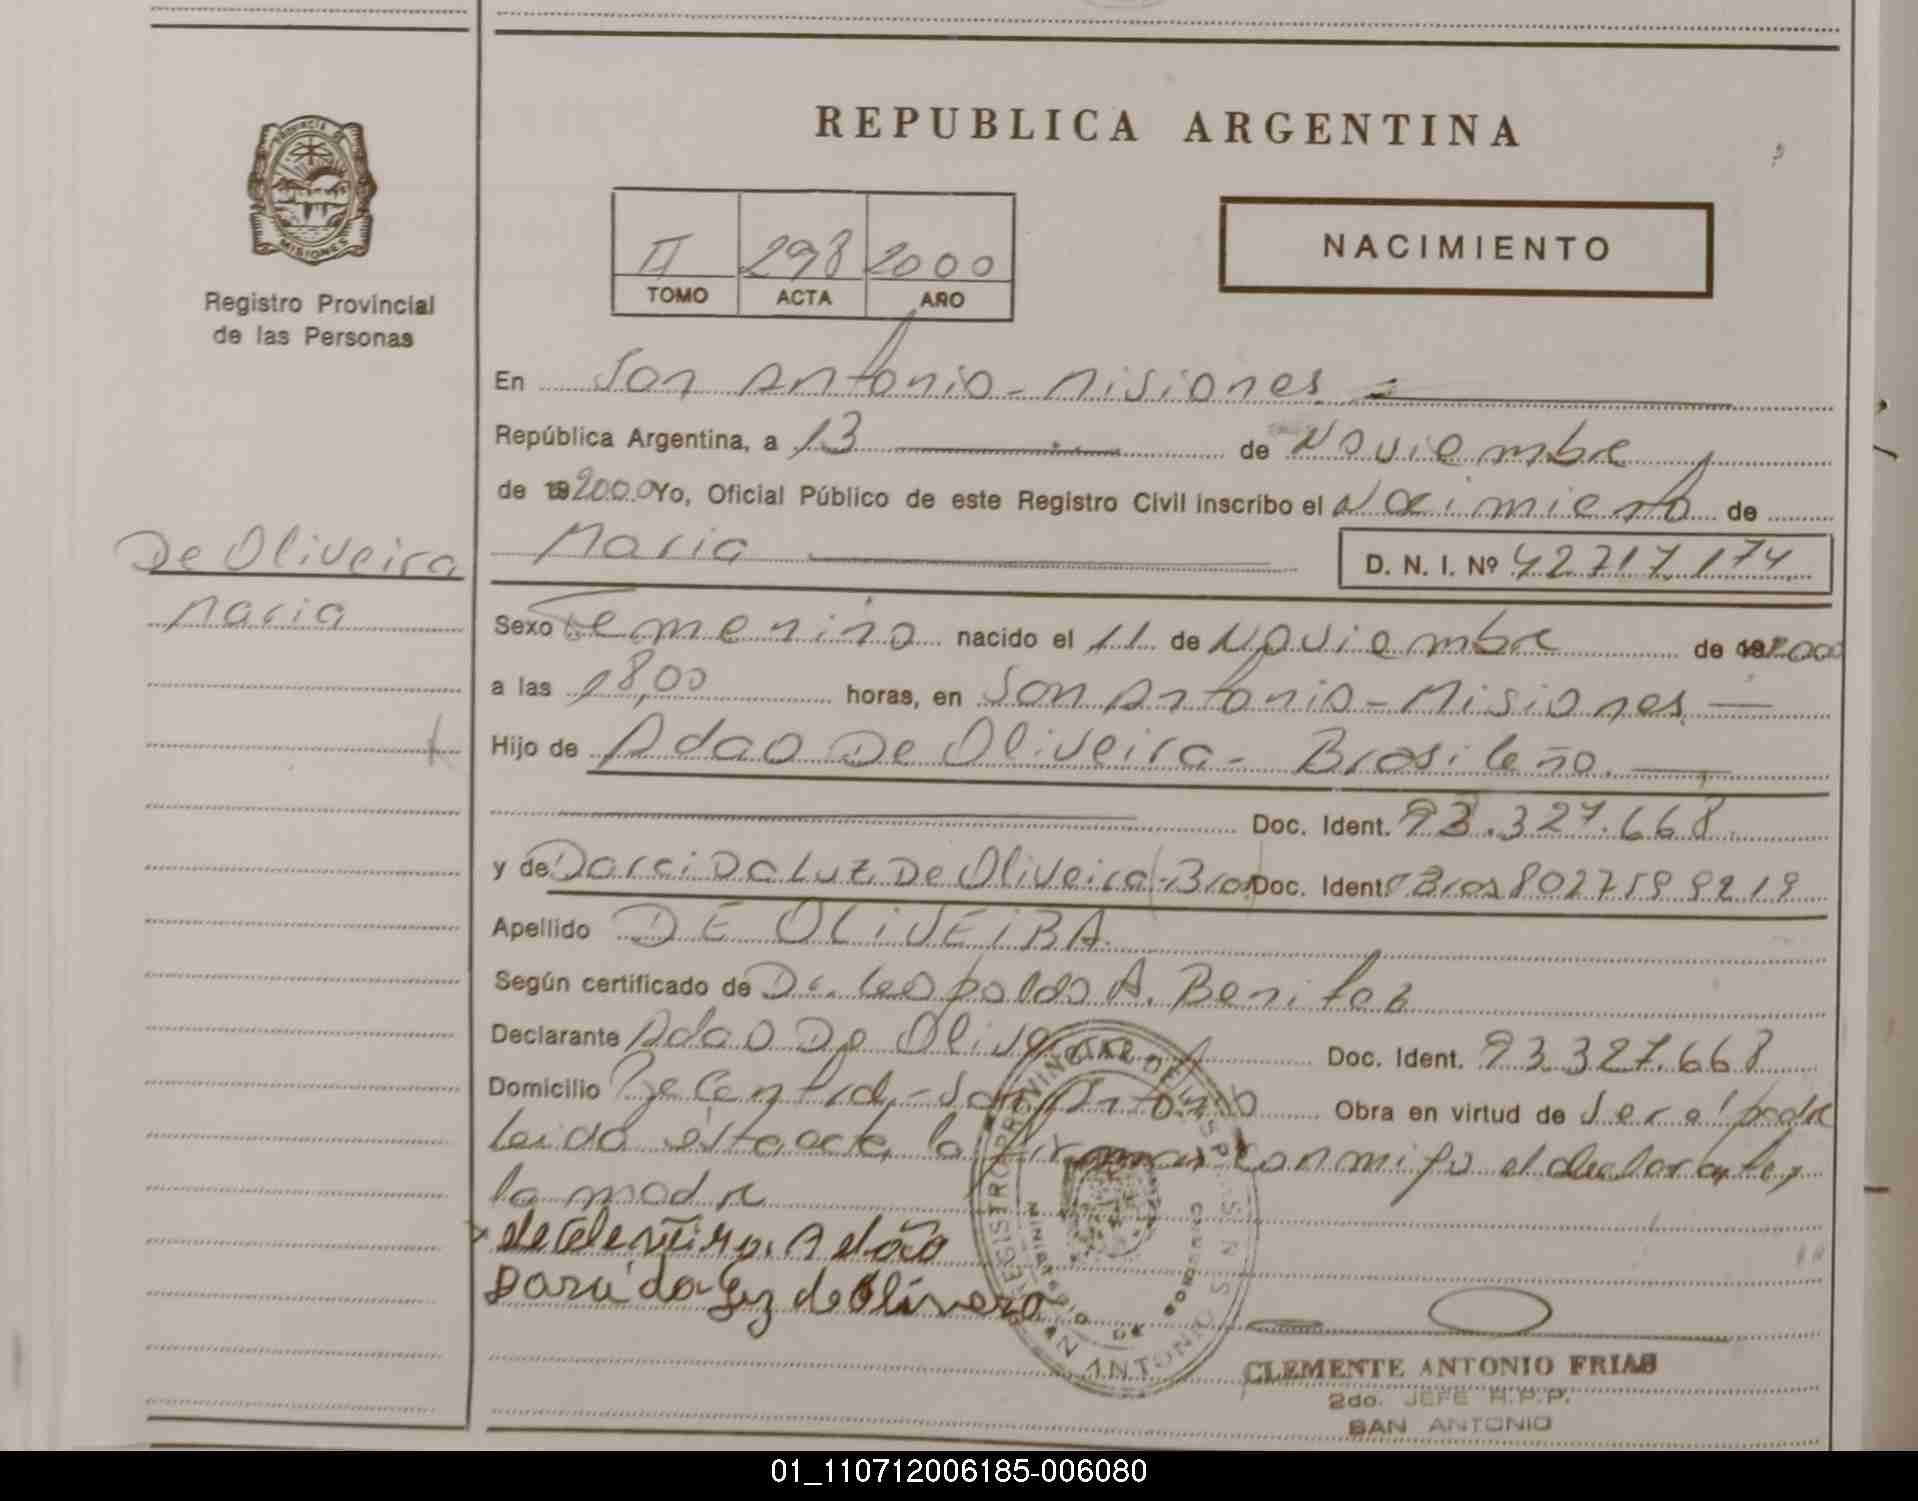 REPUBLICA ARGENTINA
PROVINCIA DE
MISIONES
Registro Provincial
de las Personas
II 298 2000
TOMO ACTA AÑO
NACIMIENTO
En San Antonio - Misiones
República Argentina, a 13 de Noviembre
de 19 2000 Yo, Oficial Público de este Registro Civil inscribo el Nacimiento de
Maria D. N. I. Nº 42717.174
De Oliveira
Maria
Sexo Femenino nacido el 11 de Noviembre de 2000
a las 18,00 horas, en San Antonio - Misiones
Hijo de Adao De Oliveira - Brasileño
Doc. Ident. 93.327.668
y de Darci Da Luz De Oliveira - Bras Doc. Ident. Bras 8027599219
Apellido DE OLIVEIRA
Según certificado de Dr. Leopoldo A. Benitez
Declarante Adao De Oliveira Doc. Ident. 93.327.668
Domicilio San Antonio Obra en virtud de Ser el padre
Leida esta acta, la firman conmigo el declarante y
la madre
de Oliveira Adão
Darci da Luz de Oliveira
REGISTRO PROVINCIAL DE LAS PERSONAS
MINISTERIO DE GOBIERNO
SAN ANTONIO
CLEMENTE ANTONIO FRIAS
2do. JEFE R.P.P.
SAN ANTONIO
01_110712006185-006080